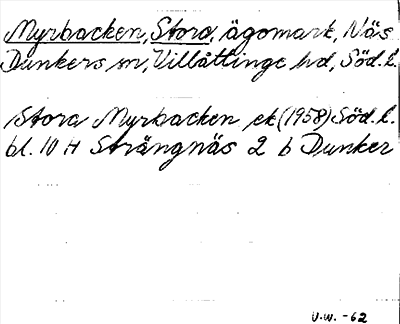 Myrbacken, Stora, ägomark, Näs
Dunkers sn, Villåttinge hd, Söd. l.
Stora Myrbacken ek (1958) Söd. l.
bl. 10 H Strängnäs 2 b Dunker
U.W. -62